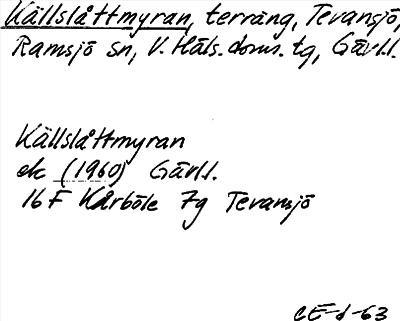 Källslåttmyran, terräng, Tevansjö,
Ramsjö sn, V. Häls. doms. tg, Gävl.l.
Källslåttmyran
ek (1960) Gävl.l.
16 F Kårböle 7g Tevansjö
CE-d-63